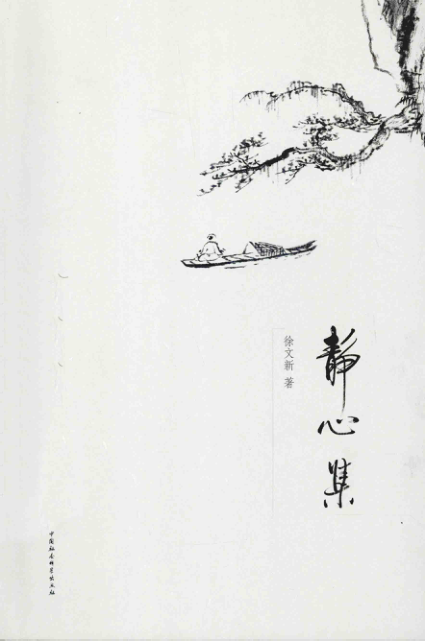 静心集
徐文新 著
中国社会科学出版社